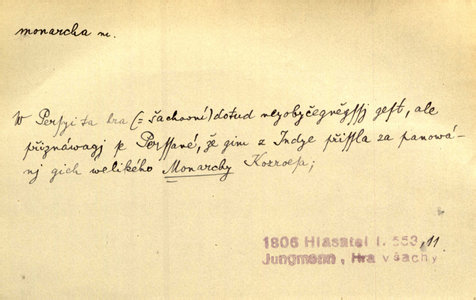 monarcha m.
W Persyi ta hra (= šachovní) dotud neyobyčegněgssj gest, ale
přiznáwagj se Perssané, že gim z Indye přissla za panowá-
nj gich welikého Monarchy Kozroesa;
1806 Hlasatel I. 553, 11.
Jungmann, Hra v šachy